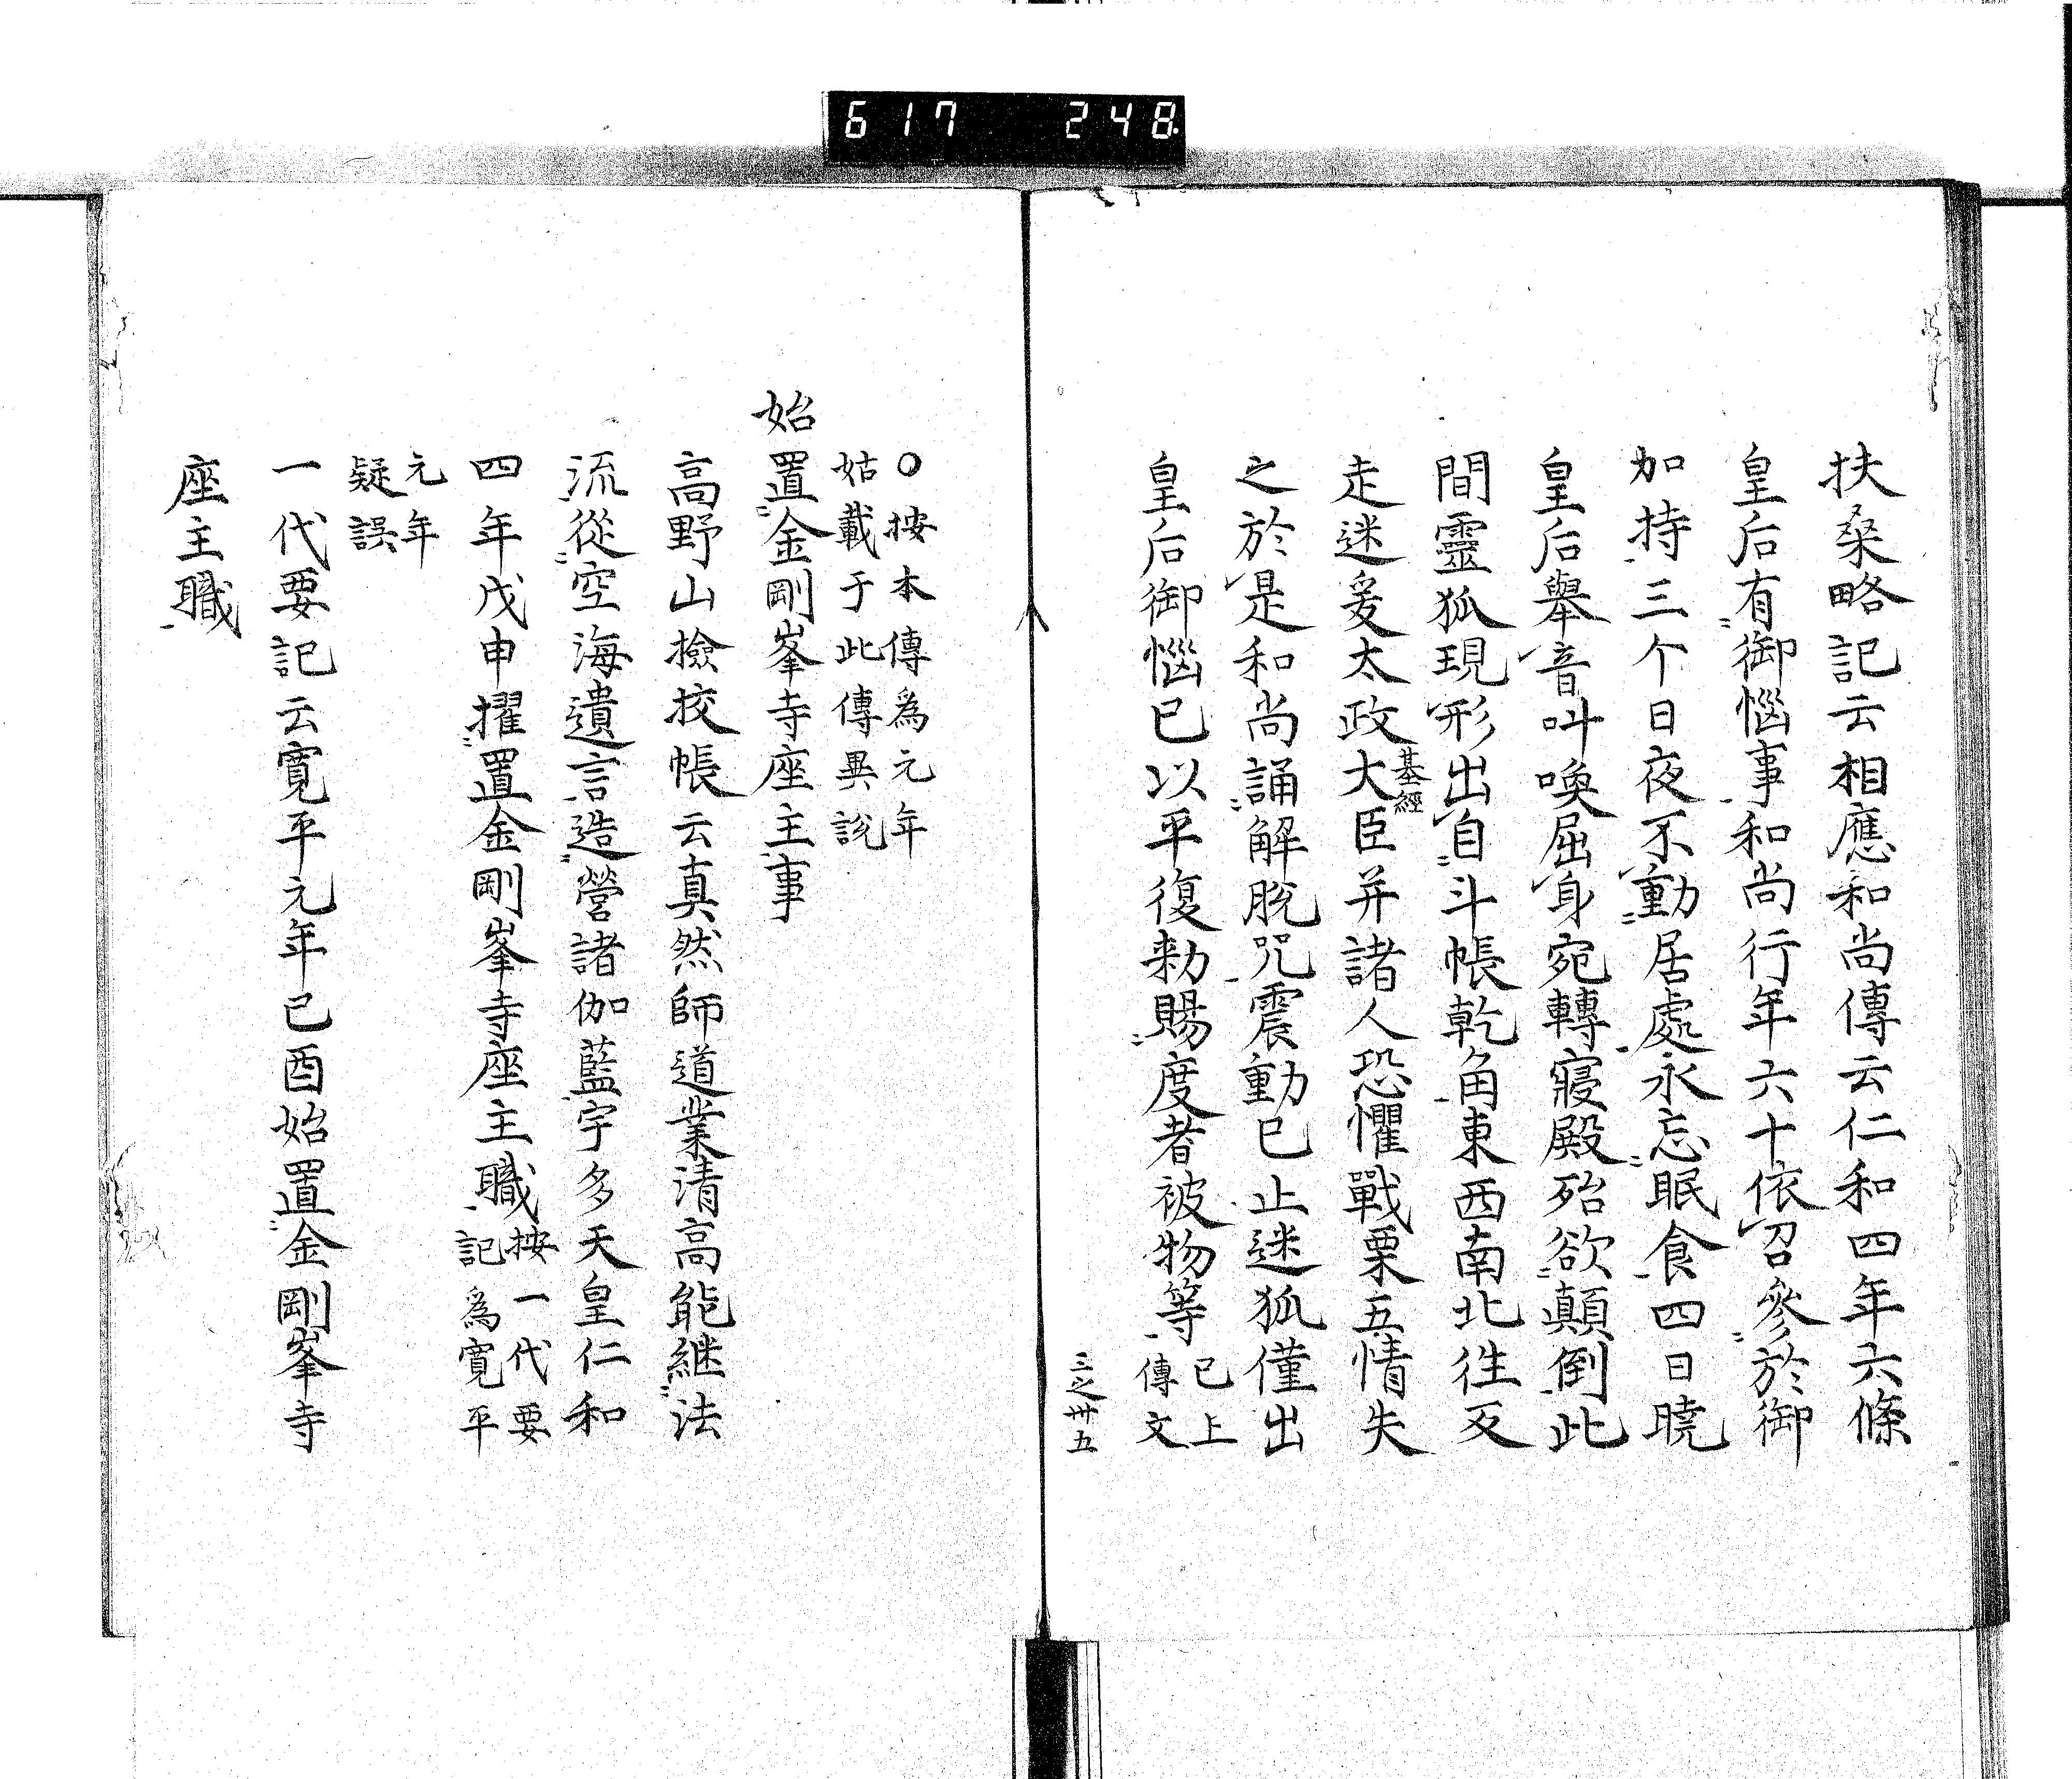 617 248
扶桑略記云相應和尚傳云仁和四年六條
皇后有御惱事和尚行年六十依召參於御
加持三个日夜不動居處永忘眠食四日曉
皇后舉音叫喚屈身宛轉寢殿殆欲顛倒此
間靈狐現形出自斗帳乾角東西南北徃反
走迷爰太政大臣基經并諸人恐懼戰栗五情失
之於是和尚誦解脫咒震動已止迷狐僅出
皇后御惱已以平復勅賜度者被物等已上
傳文
三之卅五
○按本傳爲元年
姑載于此傳異說
始置金剛峯寺座主事
高野山撿挍帳云真然師道業清高能継法
流從空海遺言造營諸伽藍宇多天皇仁和
四年戊申擢置金剛峯寺座主職按一代要
記爲寛平
元年
疑誤
一代要記云寛平元年己酉始置金剛峯寺
座主職